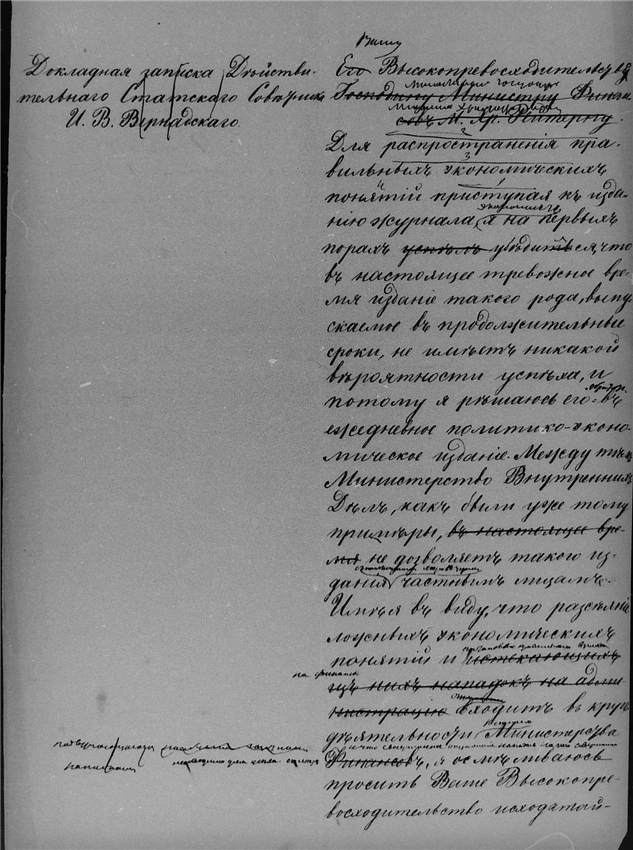 Докладная записка Дѣйстви-
тельнаго Статскаго Совѣтника
И. В. Вернадскаго.
Вашу
Его Высокопревосходительству
Милостивый Государь
Господину Министру Финан-
совъ М. Хр. Рейтерну.
Для распространенія пра-
вильныхъ экономическихъ
понятій приступая къ изда-
нію журнала, я на первыхъ
порахъ успѣлъ убѣдиться, что
въ настоящее тревожное вре-
мя изданіе такого рода, выпу-
скаемое въ продолжительные
сроки, не имѣетъ никакой
вѣроятности успѣха, и
потому я рѣшаюсь его въ
ежедневное политико-эконо-
мическое изданіе. Между тѣмъ
Министерство Внутреннихъ
Дѣлъ, какъ были уже тому
примѣры, въ настоящее вре-
мя не дозволяетъ такого из-
данія частнымъ лицамъ.
Имѣя въ виду, что разсѣяніе
ложныхъ экономическихъ
понятій и истекающихъ
на финансы
изъ нихъ нападокъ на адми-
нистрацію входитъ въ кругъ
дѣятельности Министерства
Финансовъ, я осмѣливаюсь
просить Ваше Высокопре-
восходительство исходатай-